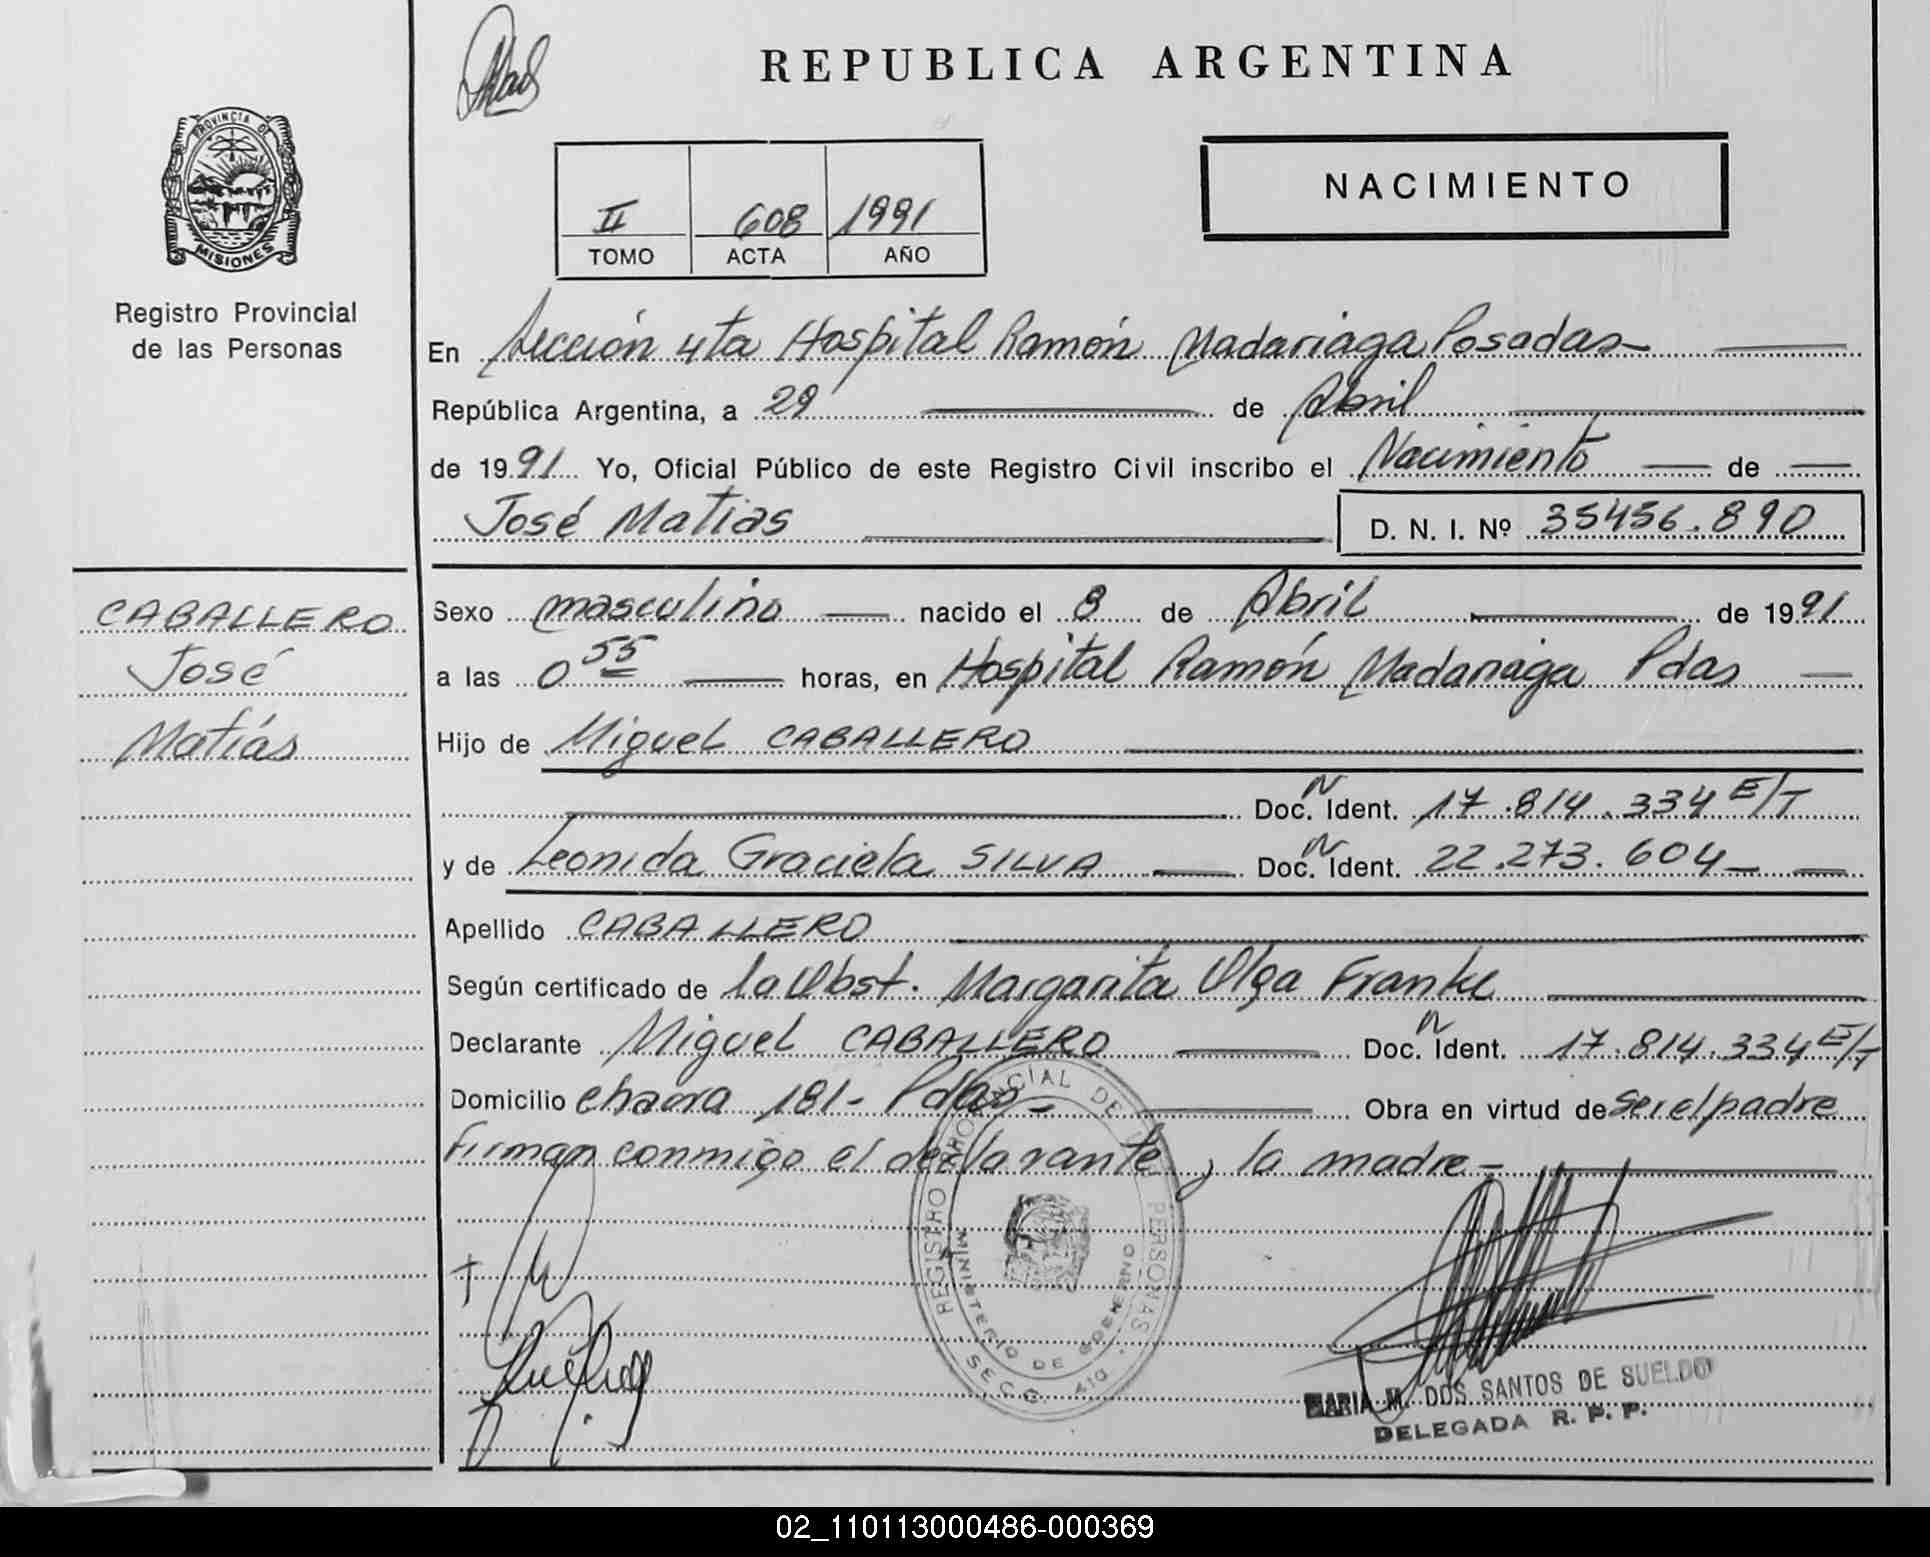 REPUBLICA ARGENTINA
PROVINCIA DE
MISIONES
Registro Provincial
de las Personas
NACIMIENTO
II 608 1991
TOMO ACTA AÑO
En Sección 4ta Hospital Ramón Madariaga Posadas
República Argentina, a 29 de Abril
de 1991 Yo, Oficial Público de este Registro Civil inscribo el Nacimiento de
José Matias D. N. I. Nº 35456.890
CABALLERO
José
Matías
Sexo masculino nacido el 8 de Abril de 1991
a las 0 55 horas, en Hospital Ramón Madariaga Pdas
Hijo de Miguel CABALLERO
Doc. N Ident. 17.814.334 E/T
y de Leonida Graciela SILVA Doc. N Ident. 22.273.604
Apellido CABALLERO
Según certificado de la Obst. Margarita Olga Franke
Declarante Miguel CABALLERO Doc. N Ident. 17.814.334 E/T
Domicilio chacra 181- Pdas- Obra en virtud de ser el padre
Firman conmigo el declarante y la madre-
REGISTRO PROVINCIAL DE LAS PERSONAS
MINISTERIO DE GOBIERNO
SECC. 4ta
MARIA M. DOS SANTOS DE SUELDO
DELEGADA R. P. P.
02_110113000486-000369